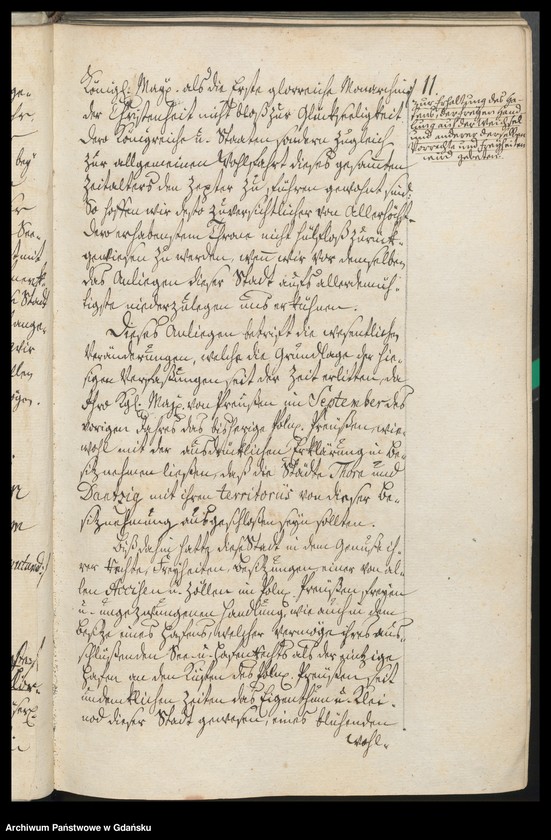 11.
Königl. Maj. als die Erste glorreiche Monarchin
der Christenheit nicht bloß zur Glückseligkeit
Dero Königreiche u. Staaten sondern zugleich
zur allgemeinen Wohlfahrt dieses gesamten
Zeitalters den Zepter zu führen gewohnt sind
So hoffen wir desto zuversichtlicher von Allerhöchst
Dero erhabenstem Throne nicht hülfloß zurück-
gewiesen zu werden, wenn wir vor demselben
das Anliegen dieser Stadt aufs allerdemüth-
tigste niederzulegen uns erkühnen.
Dieses Anliegen betrift die wesentlichen
Veränderungen, welche die Grundlage der hie-
sigen Verfaßungen seit der Zeit erlitten, da
Ihro Kgl. Maj. von Preußen im September des
vorigen Jahres das bisherige Poln. Preußen, wie-
wohl mit der ausdrücklichen Erklärung in Be-
sitz nehmen ließen, daß die Städte Thorn und
Dantzig mit ihren territoriis von dieser Be-
sitznehmung ausgeschloßen seyn sollten.
Biß dahin hatte diese Stadt in dem Genuße ih-
rer Rechte, Freyheiten, Besitzungen einer von al-
len Accisen u. Zöllen im Poln. Preußen, freyen
u. ungezwungenen Handlung, wie auch in dem
Besitze eines Hafens, welcher vermöge ihres aus-
schlüßenden See- u. Hafen Rechts als der eintzige
Hafen an den Küsten des Poln. Preußen seit
undenklichen Zeiten das Eigenthum u. Klei-
nod dieser Stadt gewesen, eines blühenden
Wohl-
zur Erhaltung des Ha-
fens, der freyen Hand-
lung auf der Weichsel
und anderer derselben
Vorrechte und Freyheiten
wird gebeten.
Archiwum Państwowe w Gdańsku